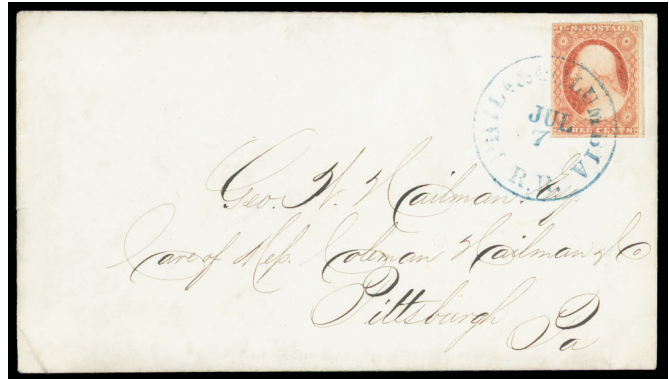 U.S. POSTAGE
THREE CENTS
PHILA & COLUMBIA
JUL
7
R.R.
Geo. W. Hailman. Esq.
Care of Mess. Coleman Hailman & Co
Pittsburgh
Pa